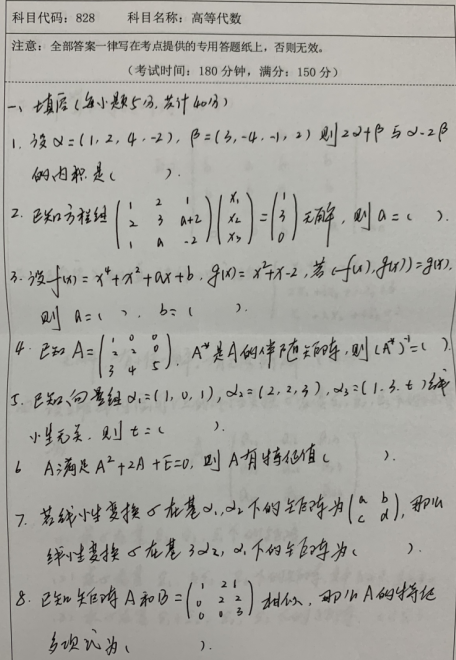 科目代码：828 科目名称：高等代数
注意：全部答案一律写在考点提供的专用答题纸上，否则无效。
（考试时间：180分钟，满分：150分）
一、填空（每小题5分，共计40分）
1. 设α=(1, 2, 4, -2), β=(3, -4, -1, 2) 则2α+β与α-2β
的内积是( ).
2. 已知方程组 (1 2 1; 2 3 a+2; 1 a -2)(x₁; x₂; x₃)=(1; 3; 0) 无解, 则a=( ).
3. 设f(x)=x⁴+x²+ax+b, g(x)=x²+x-2, 若(f(x), g(x))=g(x),
则a=( ), b=( ).
4. 已知A=(1 0 0; 2 2 0; 3 4 5), A*是A的伴随矩阵, 则(A*)⁻¹=( ).
5. 已知向量组α₁=(1, 0, 1), α₂=(2, 2, 3), α₃=(1, 3, t)线
性无关, 则t=( ).
6 A满足A²+2A+E=0, 则A有特征值( ).
7. 若线性变换σ在基α₁, α₂下的矩阵为(a b; c d), 那么
线性变换σ在基3α₂, α₁下的矩阵为( ).
8. 已知矩阵A和B=(1 2 1; 0 2 2; 0 0 3)相似, 那么A的特征
多项式为( ).